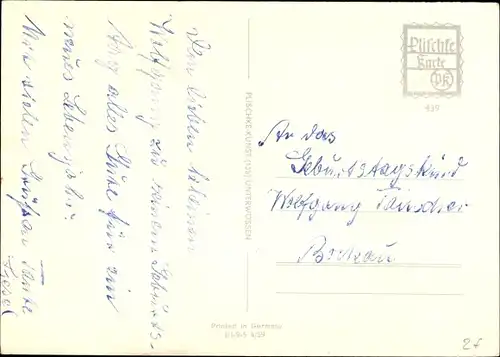 Dem lieben kleinen
Wolfgang zu seinem Geburts-
tag alles Gute für ein
neues Lebensjahr.
Mit vielen Grüßen Tante
Liesel
PLISCHKE KUNST, (13b) UNTERWÖSSEN
Plischke
Karte
PK
439
An das
Geburtstagskind
Wolfgang
Printed in Germany
2€